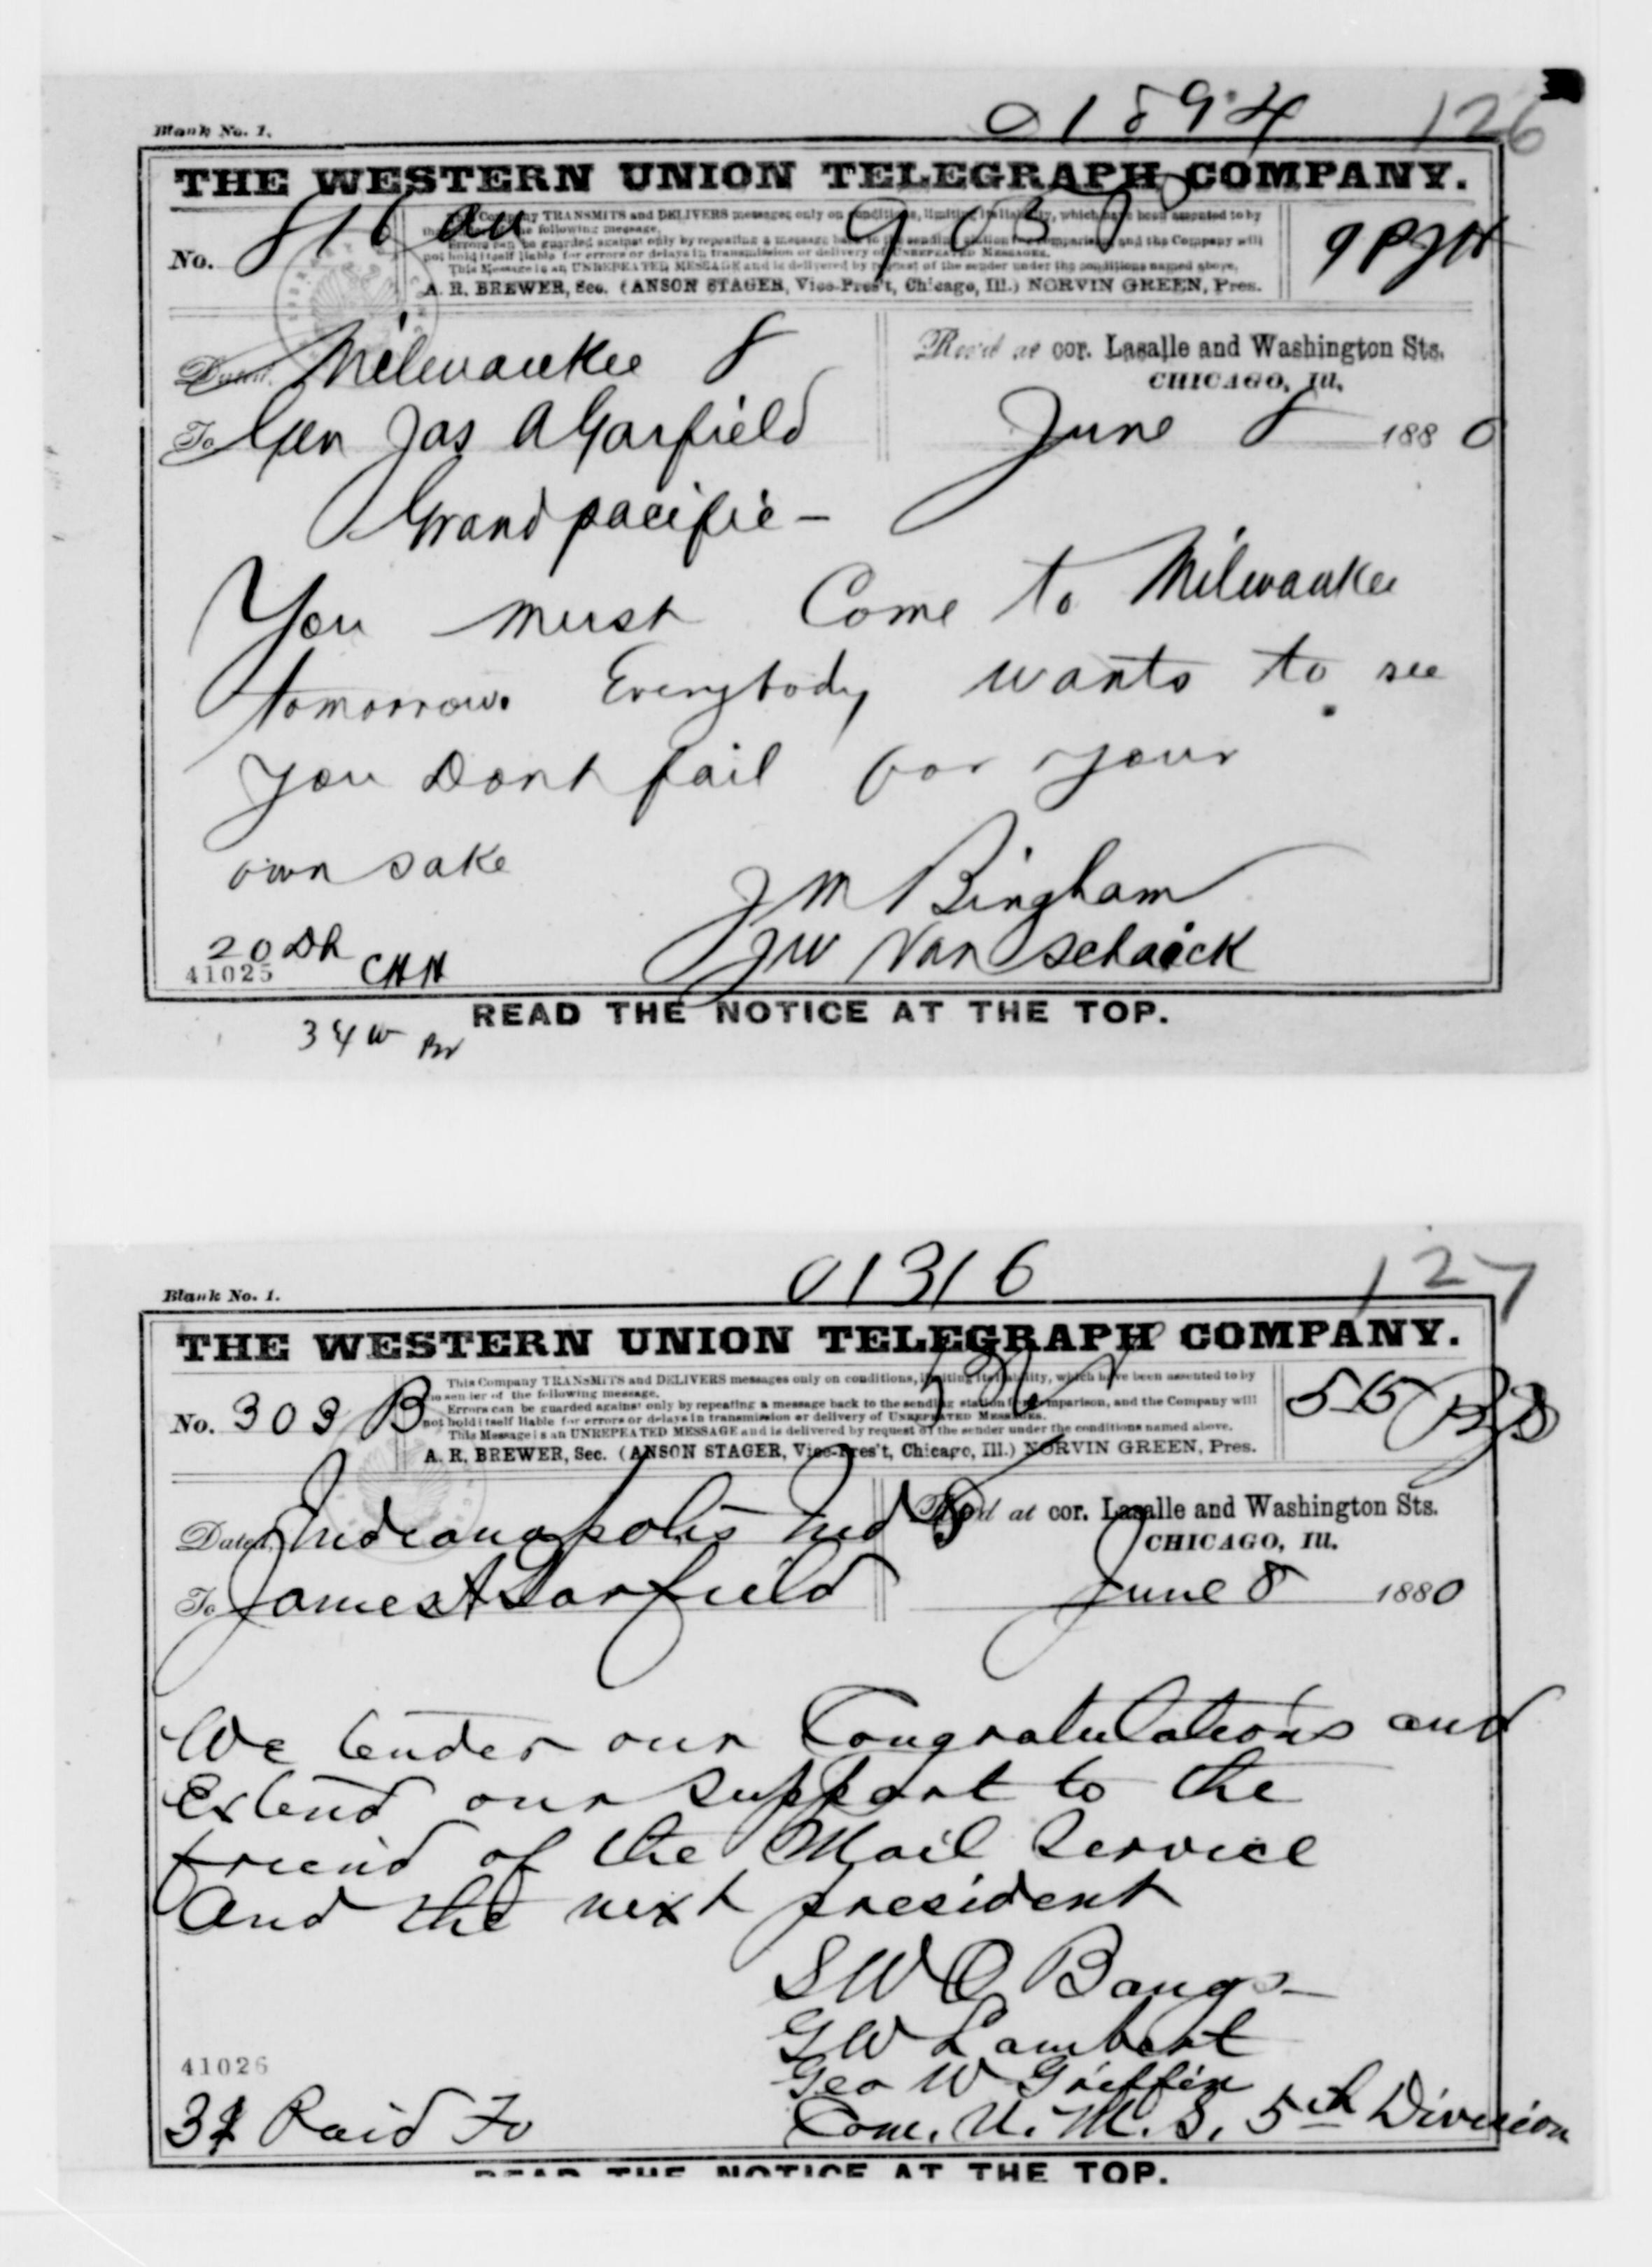 01894 126
Blank No. 1.
THE WESTERN UNION TELEGRAPH COMPANY.
This Company TRANSMITS and DELIVERS messages only on conditions, limiting its liability, which have been assented to by
the sender of the following message.
Errors can be guarded against only by repeating a message back to the sending station for comparison, and the Company will
not hold itself liable for errors or delays in transmission or delivery of UNREPEATED MESSAGES.
This Message is an UNREPEATED MESSAGE and is delivered by request of the sender under the conditions named above.
No. 816
A. R. BREWER, Sec. (ANSON STAGER, Vice-Pres't, Chicago, Ill.) NORVIN GREEN, Pres.
Dated, Milwaukee 8
Rec'd at cor. Lasalle and Washington Sts.
CHICAGO, Ill.
To Gen Jas A Garfield
June 8 1880
Grand pacific -
You must Come to Milwaukee
tomorrow. Everybody wants to see
you Dont fail for your
own sake
J M Bingham
J W Van Schaick
20 Dh
41025
READ THE NOTICE AT THE TOP.
34 w
01316 127
Blank No. 1.
THE WESTERN UNION TELEGRAPH COMPANY.
This Company TRANSMITS and DELIVERS messages only on conditions, limiting its liability, which have been assented to by
the sender of the following message.
Errors can be guarded against only by repeating a message back to the sending station for comparison, and the Company will
not hold itself liable for errors or delays in transmission or delivery of UNREPEATED MESSAGES.
This Message is an UNREPEATED MESSAGE and is delivered by request of the sender under the conditions named above.
No. 303 B
A. R. BREWER, Sec. (ANSON STAGER, Vice-Pres't, Chicago, Ill.) NORVIN GREEN, Pres.
Dated, Indianapolis Ind 8
Rec'd at cor. Lasalle and Washington Sts.
CHICAGO, Ill.
To James A Garfield
June 8 1880
We tender our Congratulations and
Extend our support to the
friend of the Mail Service
And the next president
S W O Bangs
G W Lambert
Geo W Griffin
Com. U. M. S. 5th Division
41026
Paid
READ THE NOTICE AT THE TOP.